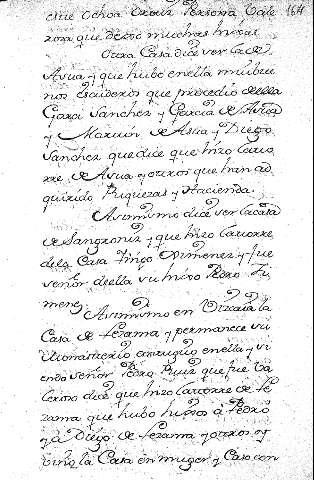 que Ochoa Persona Vale
164
rosa que dexo muchas hixas
Otra Casa dice ver la de
Asua y que hubo en ella mui bue
nos escuderos que precedio de ella
Garçi Sanchez y Garcia de Asua
y Martin de Asua y Diego
Sanchez que dice que hizo la tor
rre de Asua y otros que han ad
quirido Riquezas y Hacienda.
Asimismo dice ver la casa
de Sangroniz y que hizo la torre
de la Casa Iñigo Ximenez y fue
señor de ella su hixo Pedro Xi
menez
Asimismo en Vizcaia la
Casa de Lezama y permanece su
Monasterio antiguo en ella y si
endo señor Pedro Ruiz que fue Va
leroso dice que hizo la torre de Le
zama que hubo hixos a Pedro
y a Diego de Lezama y otros
la Casa en muger y Caso con